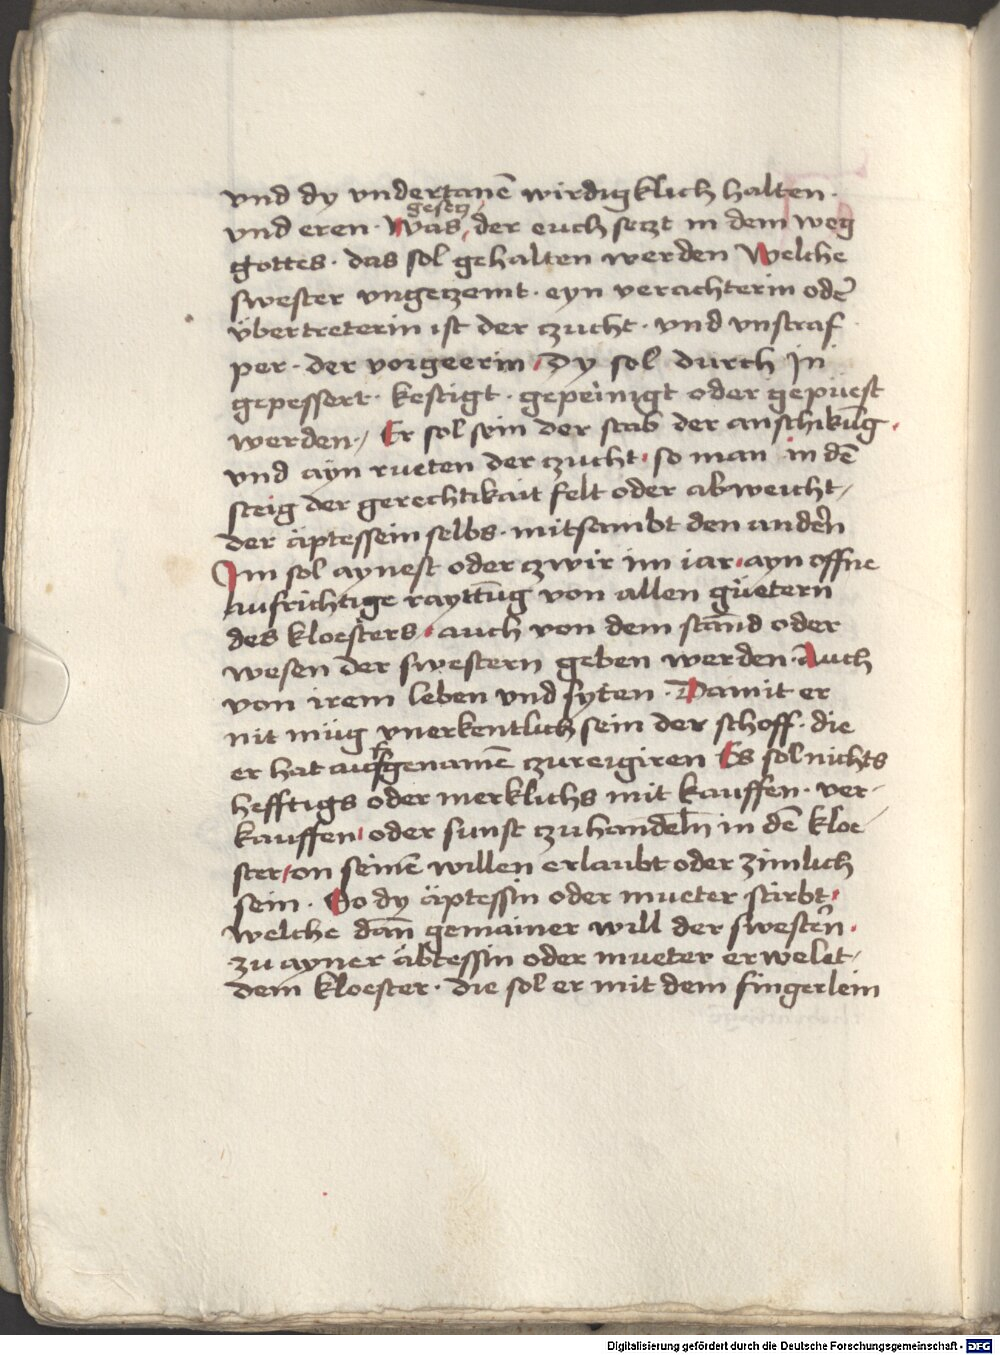 vnd dy vndertanē wirdigklich halten ·
vnd eren · Was gesetz der euch setzt in dem weg
gottes · das sol gehalten werden Welche
swester vngezemt · eyn verachterin oder
übertreterin ist der zucht · vnd vnstraf
per · der vorgeerin · Dy sol durch In
gepessert · kestigt · gepeinigt oder gepüest
werden / Er sol sein der stab der anschikūg ·
vnd ayn rueten der zucht · so man in dē
steig der gerechtikait felt oder abweicht /
der äptessein selbs · mitsambt den andern
Im sol aynest oder zwir im iar · ayn offne
aufrichtige rayttūg von allen güetern
des kloesters · auch von dem stānd oder
wesen der swestern geben werden · Auch
von irem leben vnd syten · Damit er
nit müg vnerkentlich sein der schoff · die
er hat aufgenamē zu reigiren Es sol nichts
hefftigs oder merklichs mit kauffen · ver-
kauffen · oder sunst zu handeln in dē kloe-
ster · on seinē willen erlaubt oder zimlich
sein · So dy äptessin oder mueter stirbt ·
welche dān gemainer will der swestern ·
zu ayner äbtessin oder mueter erwelet /
dem kloester · die sol er mit dem fingerlein
Digitalisierung gefördert durch die Deutsche Forschungsgemeinschaft - DFG